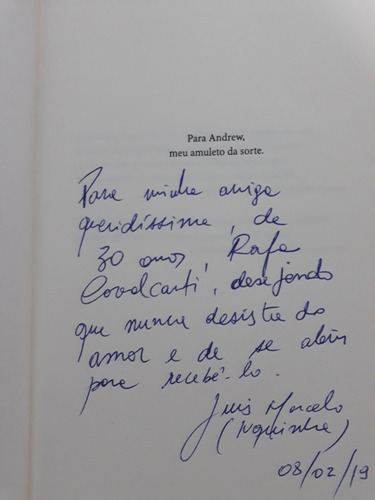 Para Andrew,
meu amuleto da sorte.
Para minha amiga
queridíssima, de
30 anos, Rafa
Cavalcanti, desejando
que nunca desista do
amor e de se abrir
para recebê-lo.
Luis Marcelo
08/02/19